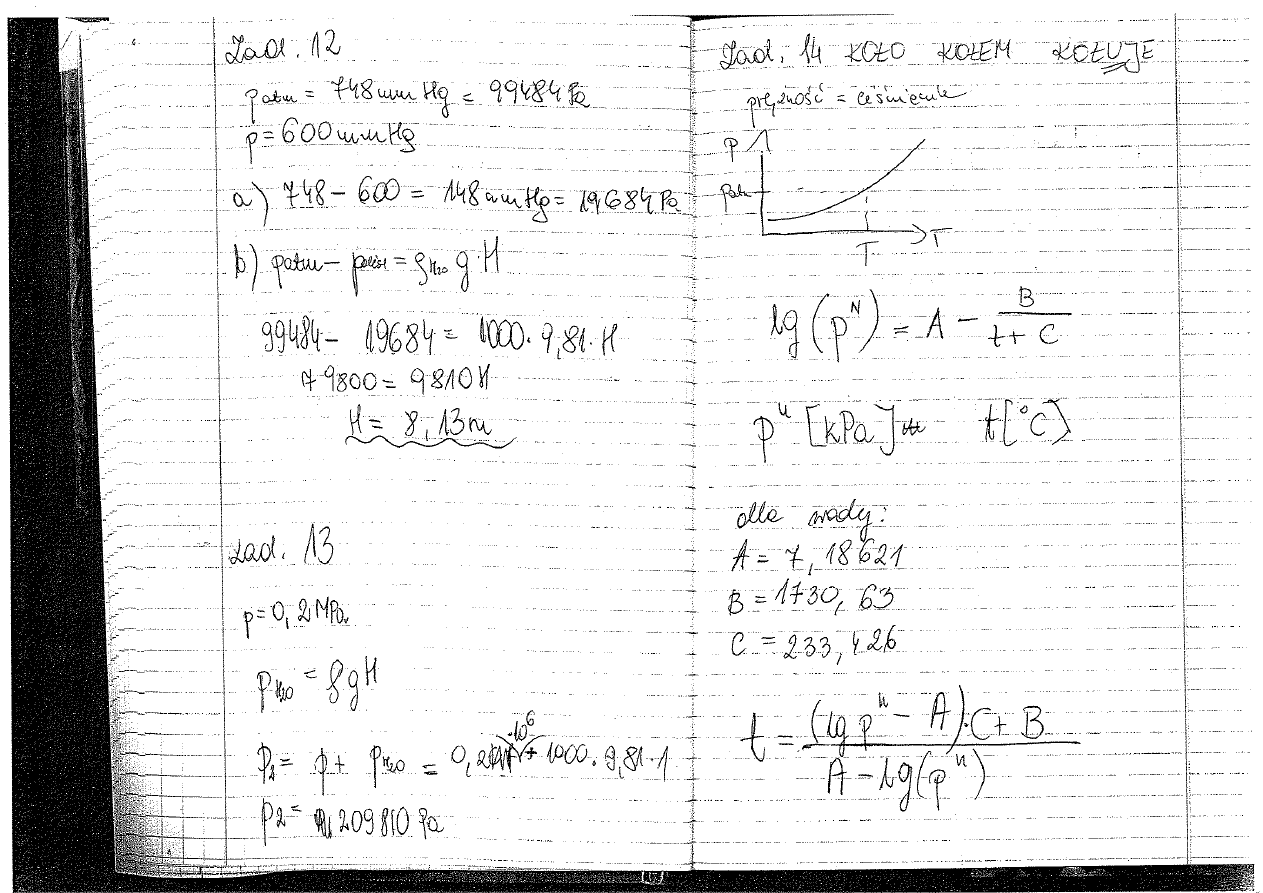 Zad. 12
patm = 748 mm Hg = 99484 Pa
p = 600 mm Hg
a) 748 - 600 = 148 mm Hg = 19684 Pa
b) patm - = ρH₂O g · H
99484 - 19684 = 1000 · 9,81 · H
79800 = 9810 H
H = 8,13 m
Zad. 13
p = 0,2 MPa
pH₂O = ρgH
p₂ = p + pH₂O = 0,2 · 10⁶ + 1000 · 9,81 · 1
p2 = 209810 Pa
Zad. 14 KOŁO KOŁEM KOŁUJE
prężność = ciśnienie
p
patm
T
T
lg(pᴺ) = A - B / (t + C)
pⁿ [kPa] t[°C]
dla wody:
A = 7,18621
B = 1730,63
C = 233,426
t = ((lg pⁿ - A) · C + B) / (A - lg(pⁿ))